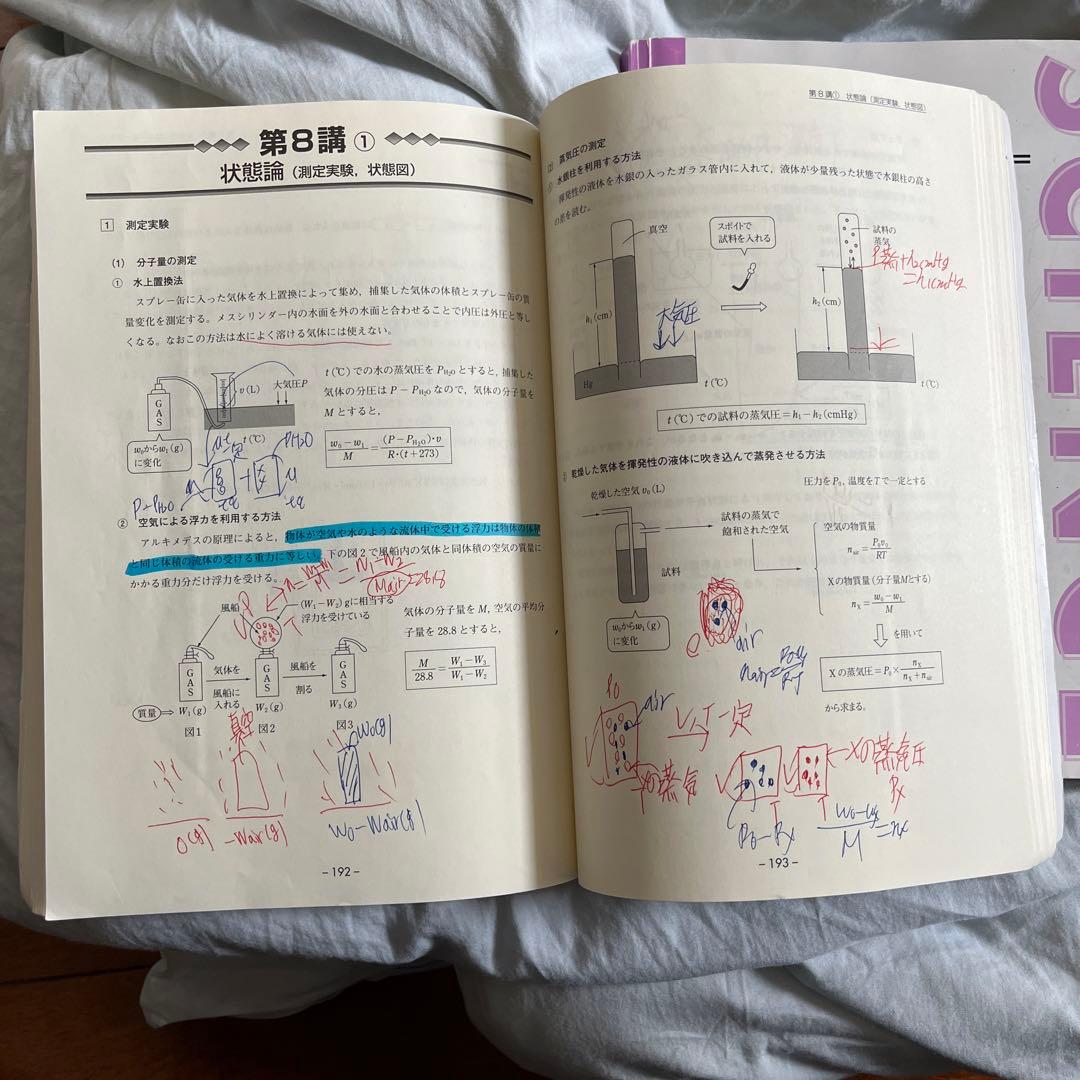 第8講 ①
状態論(測定実験, 状態図)
1 測定実験
(1) 分子量の測定
① 水上置換法
スプレー缶に入った気体を水上置換によって集め, 捕集した気体の体積とスプレー缶の質
量変化を測定する。メスシリンダー内の水面を外の水面と合わせることで内圧は外圧と等し
くなる。なおこの方法は水によく溶ける気体には使えない。
GAS
v(L)
大気圧P
t(℃)
w₀からw₁(g)
に変化
t(℃)での水の蒸気圧をP_H₂Oとすると, 捕集した
気体の分圧はP-P_H₂Oなので, 気体の分子量を
Mとすると,
(w₀-w₁)/M=(P-P_H₂O)・v/R・(t+273)
P-PH₂O
PH₂O
② 空気による浮力を利用する方法
アルキメデスの原理によると, 物体が空気や水のような流体中で受ける浮力は物体の体積
と同じ体積の流体の受ける重力に等しい。下の図2で風船内の気体と同体積の空気の質量に
かかる重力分だけ浮力を受ける。
風船
(W₁-W₂)gに相当する
浮力を受けている
GAS
気体を
風船に
入れる
GAS
風船を
割る
GAS
質量 W₁(g)
W₂(g)
W₃(g)
図1
図2
図3
気体の分子量をM, 空気の平均分
子量を28.8とすると,
M/28.8=(W₁-W₃)/(W₁-W₂)
真空
W₀(g)
0(g)
-Wair(g)
W₀-Wair(g)
-192-
第8講① 状態論(測定実験, 状態図)
(2) 蒸気圧の測定
水銀柱を利用する方法
揮発性の液体を水銀の入ったガラス管内に入れて, 液体が少量残った状態で水銀柱の高さ
の差を読む。
真空
スポイトで
試料を入れる
試料の
蒸気
h₁(cm)
h₂(cm)
大気圧
P蒸+h₂cmHg
=h₁cmHg
Hg
t(℃)
t(℃)
t(℃)での試料の蒸気圧=h₁-h₂(cmHg)
乾燥した気体を揮発性の液体に吹き込んで蒸発させる方法
乾燥した空気v₀(L)
圧力をP₀, 温度をTで一定とする
試料の蒸気で
飽和された空気
試料
w₀からw₁(g)
に変化
空気の物質量
n_air=P₀v₀/RT
Xの物質量(分子量Mとする)
n_X=(w₀-w₁)/M
を用いて
Xの蒸気圧=P₀×n_X/(n_X+n_air)
から求まる。
air
P₀
air
V, T一定
Xの蒸気
Xの蒸気圧
Px
P₀-Px
-193-